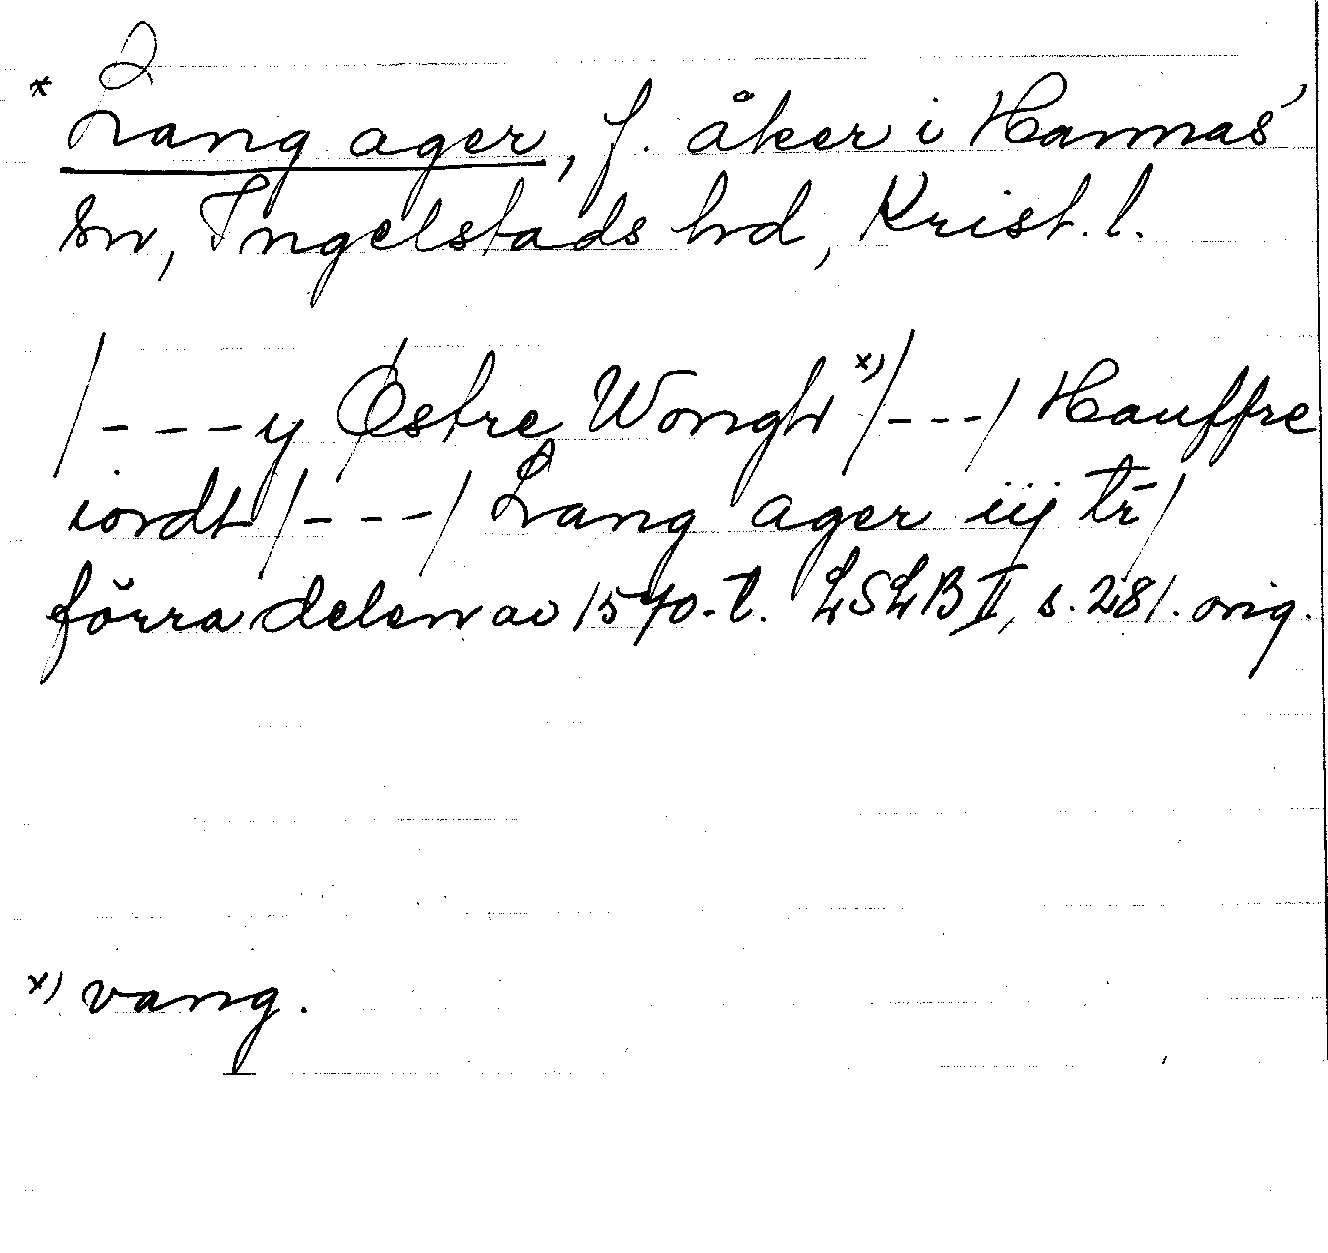 * Lang ager, f. åker i Hannas'
sn, Ingelstads hd, Krist. l.
/---y Østre Wongh x)/---/ Hauffre
iordt/---/ Lang ager iij tr̄/
förra delen av 1570-t. LSLB II, s. 281. orig.
x) vang.